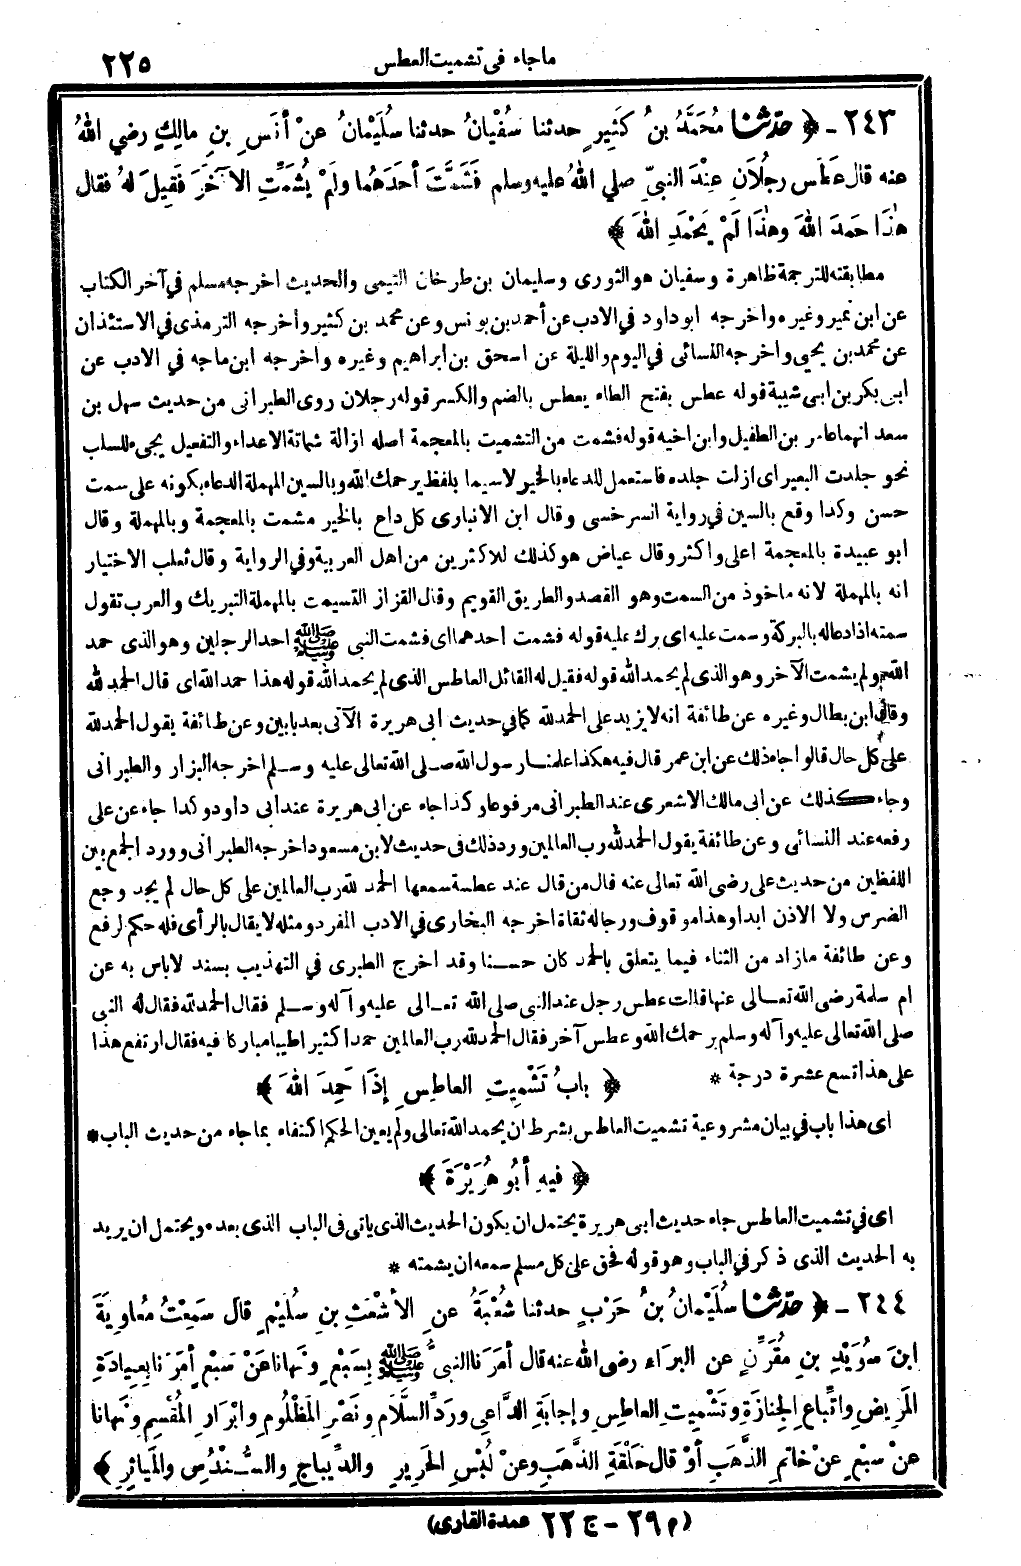 ماجاء فى تشميت العطس ٢٢٥
٢٤٣ - ﴿ حَدَّثَنَا مُحَمَّدُ بنُ كَثِيرٍ حدثنا سُفْيَانُ حدثنا سُلَيْمَانُ عنْ أنَسِ بنِ مالِكٍ رضي اللهُ
عنه قال عَطَس رجُلَانِ عِنْدَ النبيِّ صلي اللهُ عليه وسلم فَشَمَّتَ أحَدَهُما ولَمْ يُشَمِّتِ الآخَرَ فَقِيلَ لهُ فقال
هٰذَا حمَدَ اللهَ وهٰذَا لَمْ يَحْمَدِ اللهَ ﴾
مطابقته للترجمة ظاهرة وسفيان هو الثورى وسليمان بن طرخان التيمى والحديث اخرجه مسلم في آخر الكتاب
عن ابن نمير وغيره واخرجه ابو داود في الادب عن أحمد بن يونس وعن محمد بن كثير وأخرجه الترمذى في الاستئذان
عن محمد بن يحيى واخرجه النسائى في اليوم والليلة عن اسحق بن ابراهيم وغيره واخرجه ابن ماجه في الادب عن
ابى بكر بن ابى شيبة قوله عطس بفتح الطاء يعطس بالضم والكسر قوله رجلان روى الطبرانى من حديث سهل بن
سعد انهما عامر بن الطفيل وابن اخيه قوله فشمت من التشميت بالمعجمة اصله ازالة شماتة الاعداء والتفعيل يجىء للسلب
نحو جلدت البعير اى ازلت جلده فاستعمل للدعاء بالخير لاسيما بلفظ يرحمك الله وبالسين المهملة الدعاء بكونه على سمت
حسن وكدا وقع بالسين في رواية السرخسى وقال ابن الانبارى كل داع بالخير مشمت بالمعجمة وبالمهملة وقال
ابو عبيدة بالمعجمة اعلى واكثر وقال عياض هو كذلك للاكثرين من اهل العربية وفي الرواية وقال ثعلب الاختيار
انه بالمهملة لانه ماخوذ من السمت وهو القصد والطريق القويم وقال القزاز التسيمت بالمهملة التبريك والعرب تقول
سمته اذا دعاله بالبركة وسمت عليه اى برك عليه قوله فشمت احدهما اى فشمت النبى ﷺ احد الرجلين وهو الذى حمد
الله ولم يشمت الآخر وهو الذى لم يحمد الله قوله فقيل له القائل العاطس الذى لم يحمد الله قوله هذا حمد الله اى قال الحمد لله
وقال ابن بطال وغيره عن طائفة انه لا يزيد على الحمدلله كما في حديث ابى هريرة الآتى بعد بابين وعن طائفة يقول الحمدلله
على كل حال قالوا جاء ذلك عن ابن عمر قال فيه هكذا علمنا رسول الله صلى الله تعالى عليه وسلم اخرجه البزار والطبرانى
وجاء كذلك عن ابى مالك الاشعرى عند الطبرانى مرفوعا وكذا جاء عن ابى هريرة عند ابى داود وكدا جاء عن على
رفعه عند النسائى وعن طائفة يقول الحمدلله رب العالمين ورد ذلك فى حديث لابن مسعود اخرجه الطبرانى وورد الجمع بين
اللفظين من حديث على رضى الله تعالى عنه قال من قال عند عطسة سمعها الحمد لله رب العالمين على كل حال لم يجد وجع
الضرس ولا الاذن ابدا وهذا موقوف ورجاله ثقاة اخرجه البخارى في الادب المفرد ومثله لا يقال بالرأى فله حكم الرفع
وعن طائفة مازاد من الثناء فيما يتعلق بالحمد كان حسنا وقد اخرج الطبرى في التهذيب بسند لاباس به عن
ام سلمة رضى الله تعالى عنها قالت عطس رجل عند النبى صلى الله تعالى عليه وآله وسلم فقال الحمدلله فقال له النبى
صلى الله تعالى عليه وآله وسلم يرحمك الله وعطس آخر فقال الحمدلله رب العالمين حمدا كثيرا طيبا مباركا فيه فقال ارتفع هذا
على هذا تسع عشرة درجة *
﴿ بابُ تَشْمِيتِ العاطِسِ إذَا حَمِدَ اللهَ ﴾
اى هذا باب في بيان مشروعية تشميت العاطس بشرط ان يحمد الله تعالى ولم يعين الحكم اكتفاء بما جاء من حديث الباب *
﴿ فيهِ أبُو هُرَيْرَةَ ﴾
اى في تشميت العاطس جاء حديث ابى هريرة يحتمل ان يكون الحديث الذى ياتى فى الباب الذى بعده ويحتمل ان يريد
به الحديث الذى ذكر في الباب وهو قوله فحق على كل مسلم سمعه ان يشمته *
٢٤٤ - ﴿ حَدَّثَنَا سُلَيْمانُ بنُ حَرْبٍ حدثنا شُعْبَةُ عنِ الأشْعَثِ بنِ سُلَيْمٍ قال سَمِعْتُ مُعاوِيَةَ
ابنَ سُوَيْدِ بنِ مُقَرِّنٍ عن البرَاء رضى الله عنه قال أمَرَنا النبىُّ ﷺ بِسَبْعٍ ونَهانا عَنْ سَبْعٍ أمَرَنا بِعِيادَةِ
المَرِيضِ واتِّباعِ الجِنازَةِ وتَشْمِيتِ العاطِسِ وإجابَةِ الدَّاعِى ورَدِّ السَّلَامِ ونَصْرِ المَظْلُومِ وابْرَارِ المُقْسِمِ ونَهانا
عنْ سبْعٍ عنْ خاتَمِ الذَّهَبِ أوْ قال حَلْقَةِ الذَّهَبِ وعنْ لُبْسِ الحَرِيرِ والدِّيباجِ والسُّنْدُسِ والمَياثِرِ ﴾
(م ٢٩ - ج ٢٢ عمدة القارى)